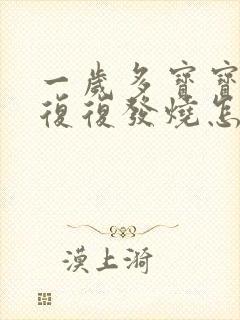 一歲多寶寶
復復發燒怎
漠上漪